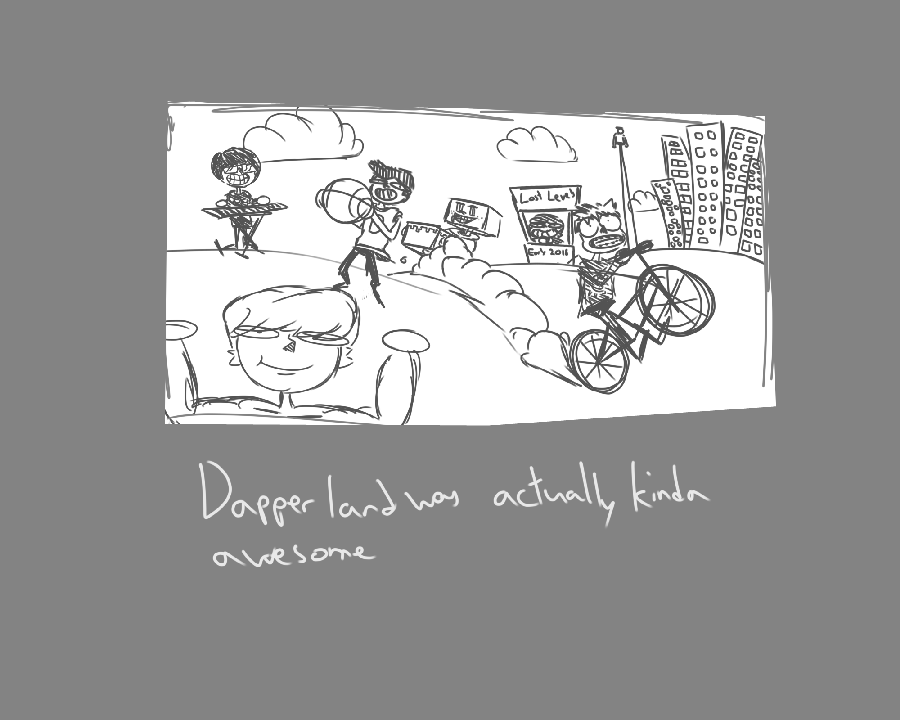 Lost Level
Early 2016
Dapper land was actually kinda
awesome